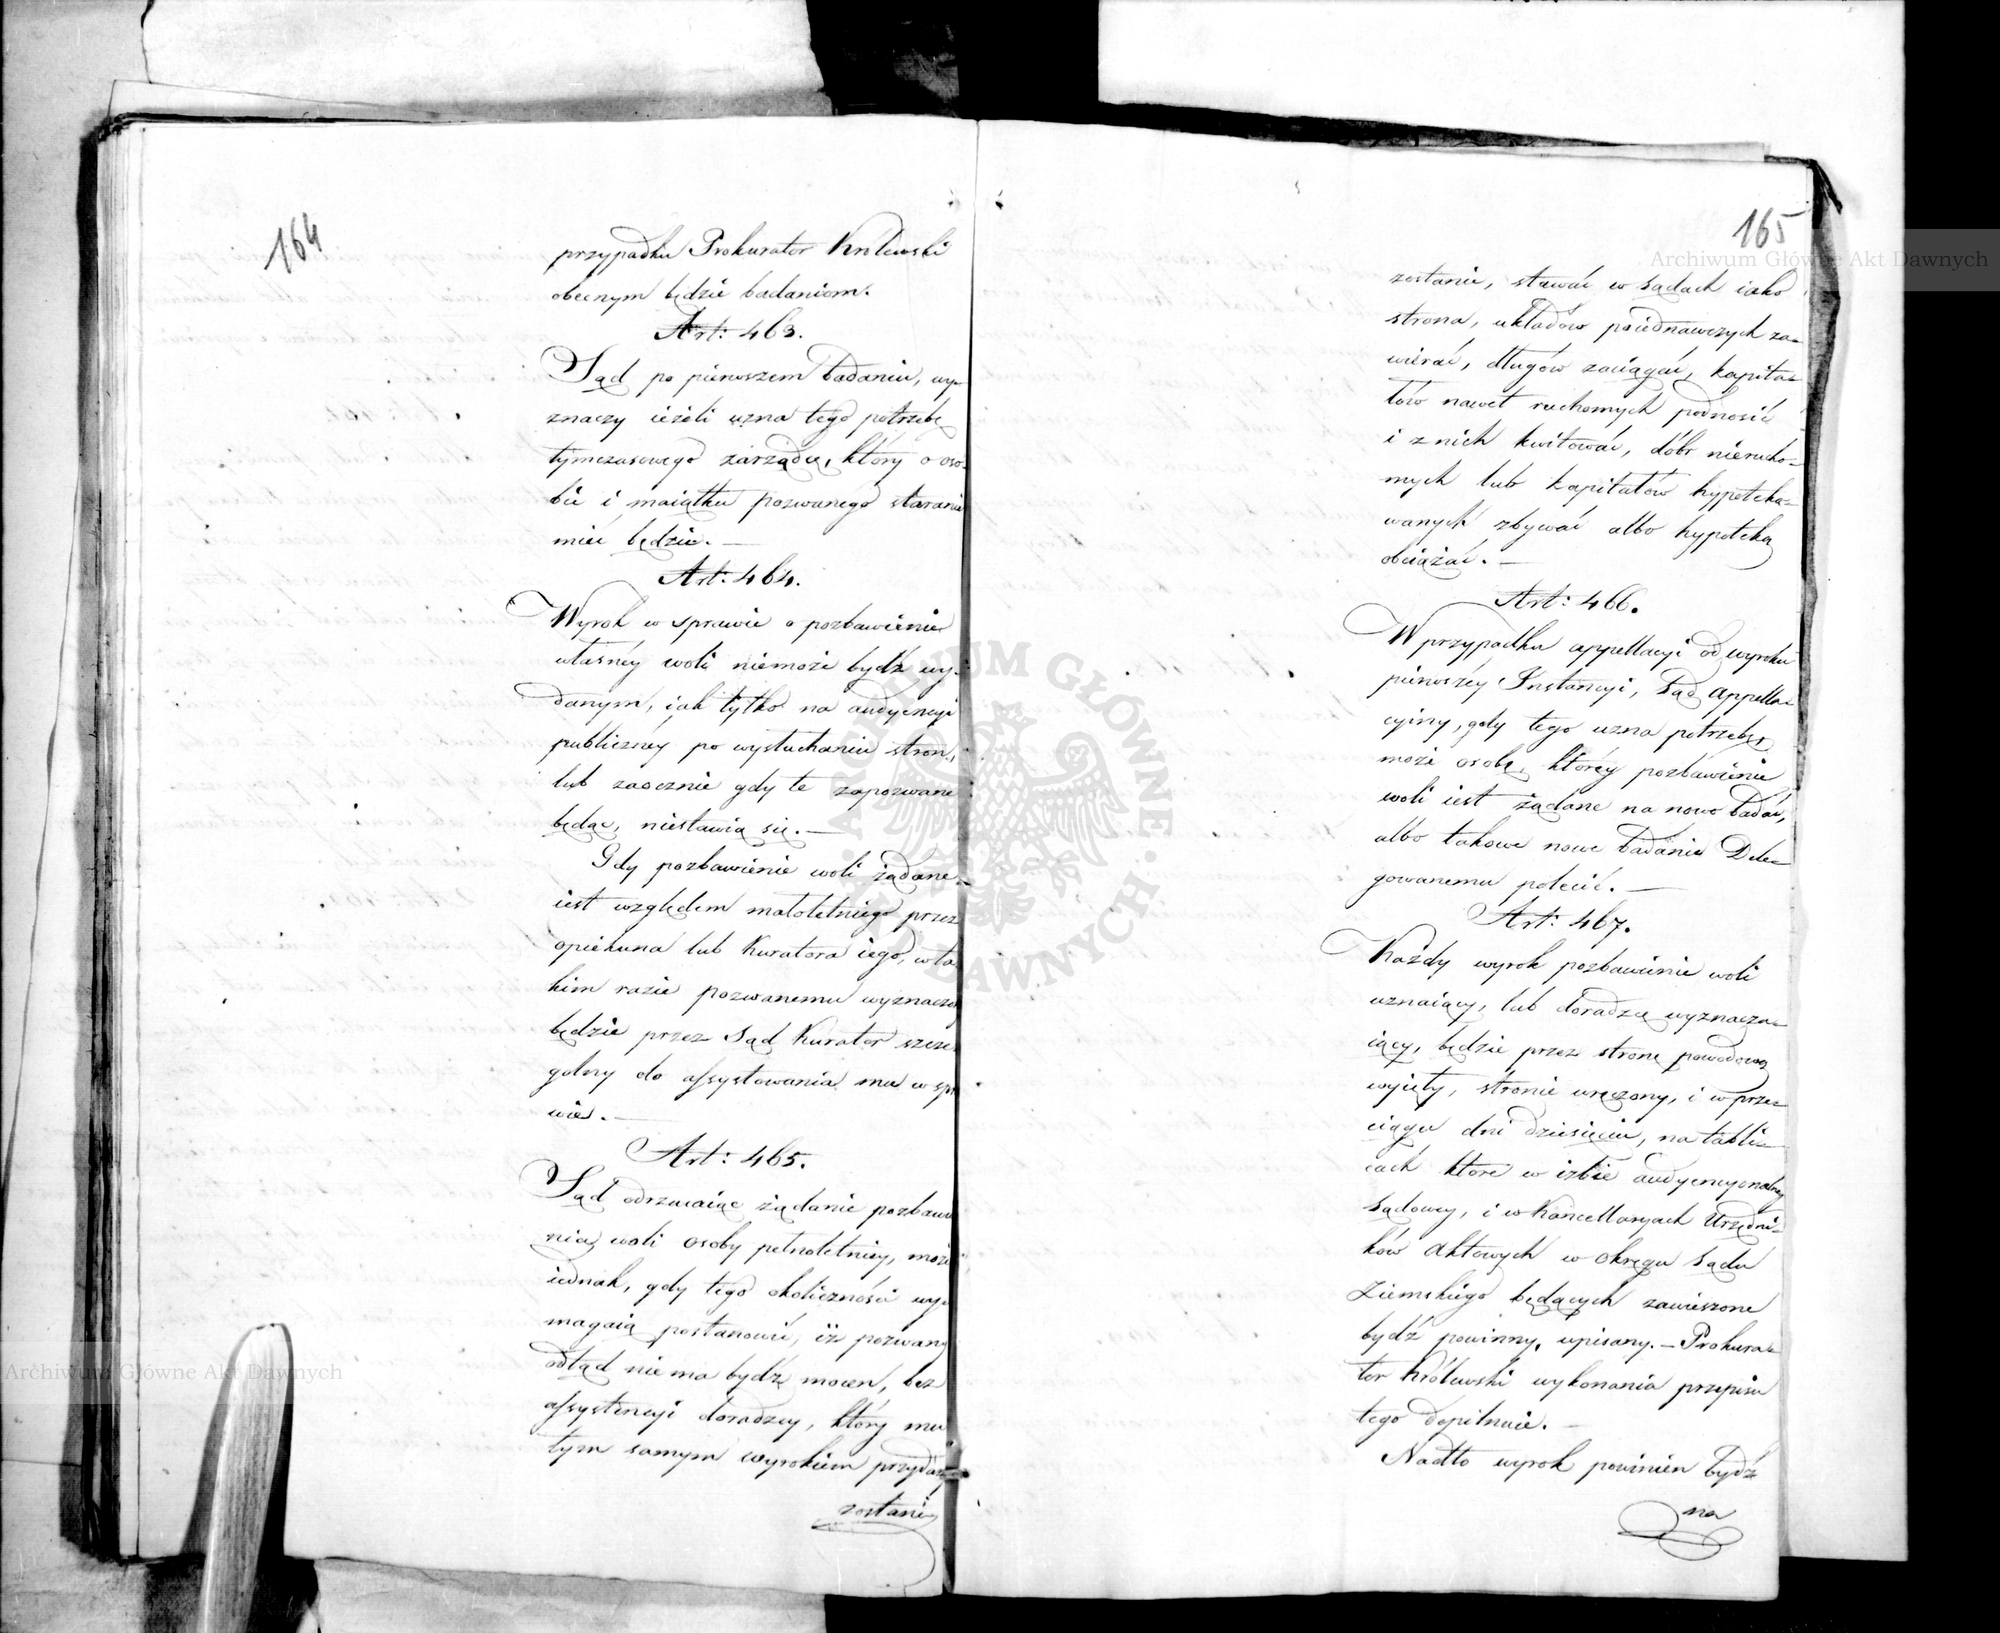 164
przypadku Prokurator Królewski
obecnym będzie badaniom.
Art: 463.
Sąd po pierwszem badaniu, wy-
znaczy ieżeli uzna tego potrzebę
tymczasowego zarządcę, który o oso-
bie i maiątku pozwanego staranie
mieć będzie. —
Art: 464.
Wyrok w sprawie o pozbawienie
własnéy woli niemoże bydź wy-
danym, iak tylko na audyencyi
publicznéy po wysłuchaniu stron,
lub zaocznie gdy te zapozwane
będąc, niestawią się. —
Gdy pozbawienie woli żądane
iest względem małoletniego przez
opiekuna lub Kuratora iego, w ta
kim razie pozwanemu wyznaczony
będzie przez Sąd Kurator szcze
gólny do assystowania mu w spra
wie. —
Art: 465.
Sąd odrzucaiąc żądanie pozbawie
nia woli osoby pełnoletniey, może
iednak, gdy tego okoliczności wy-
magaią postanowić, iż pozwany
odtąd nie ma bydź mocen, bez
assystencyi doradzcy, który mu
tym samym wyrokiem przydany
zostanie
165
zostanie, stawać w sądach iako
strona, układów poiednawczych za-
wierać, długów zaciągać, kapita-
łów nawet ruchomych podnosić
i z nich kwitować, dóbr nierucho-
mych lub kapitałów hypoteko-
wanych zbywać albo hypoteką
obciążać. —
Art: 466.
W przypadku appellacyi od wyroku
pierwszéy Instancyi, Sąd Appella-
cyiny, gdy tego uzna potrzebę,
może osobę, któréy pozbawienie
woli iest żądane na nowo badać,
albo takowe nowe badanie Dele-
gowanemu polecić. —
Art: 467.
Każdy wyrok pozbawienie woli
uznaiący, lub doradzcę wyznacza-
iący, będzie przez stronę powodową
wyięty, stronie wręczony, i w prze-
ciągu dni dziesięciu, na tabli-
cach które w izbie audyencyonalney
Sądowey, i w Kancellaryach Urzędni-
ków Aktowych w okręgu Sądu
Ziemskiego będących zawieszone
bydź powinny, wpisany. — Prokura-
tor Królewski wykonania przepisu
tego dopilnuie. —
Nadto wyrok powinien bydź
na
Archiwum Główne Akt Dawnych
Archiwum Główne Akt Dawnych
ARCHIWUM GŁÓWNE AKT DAWNYCH